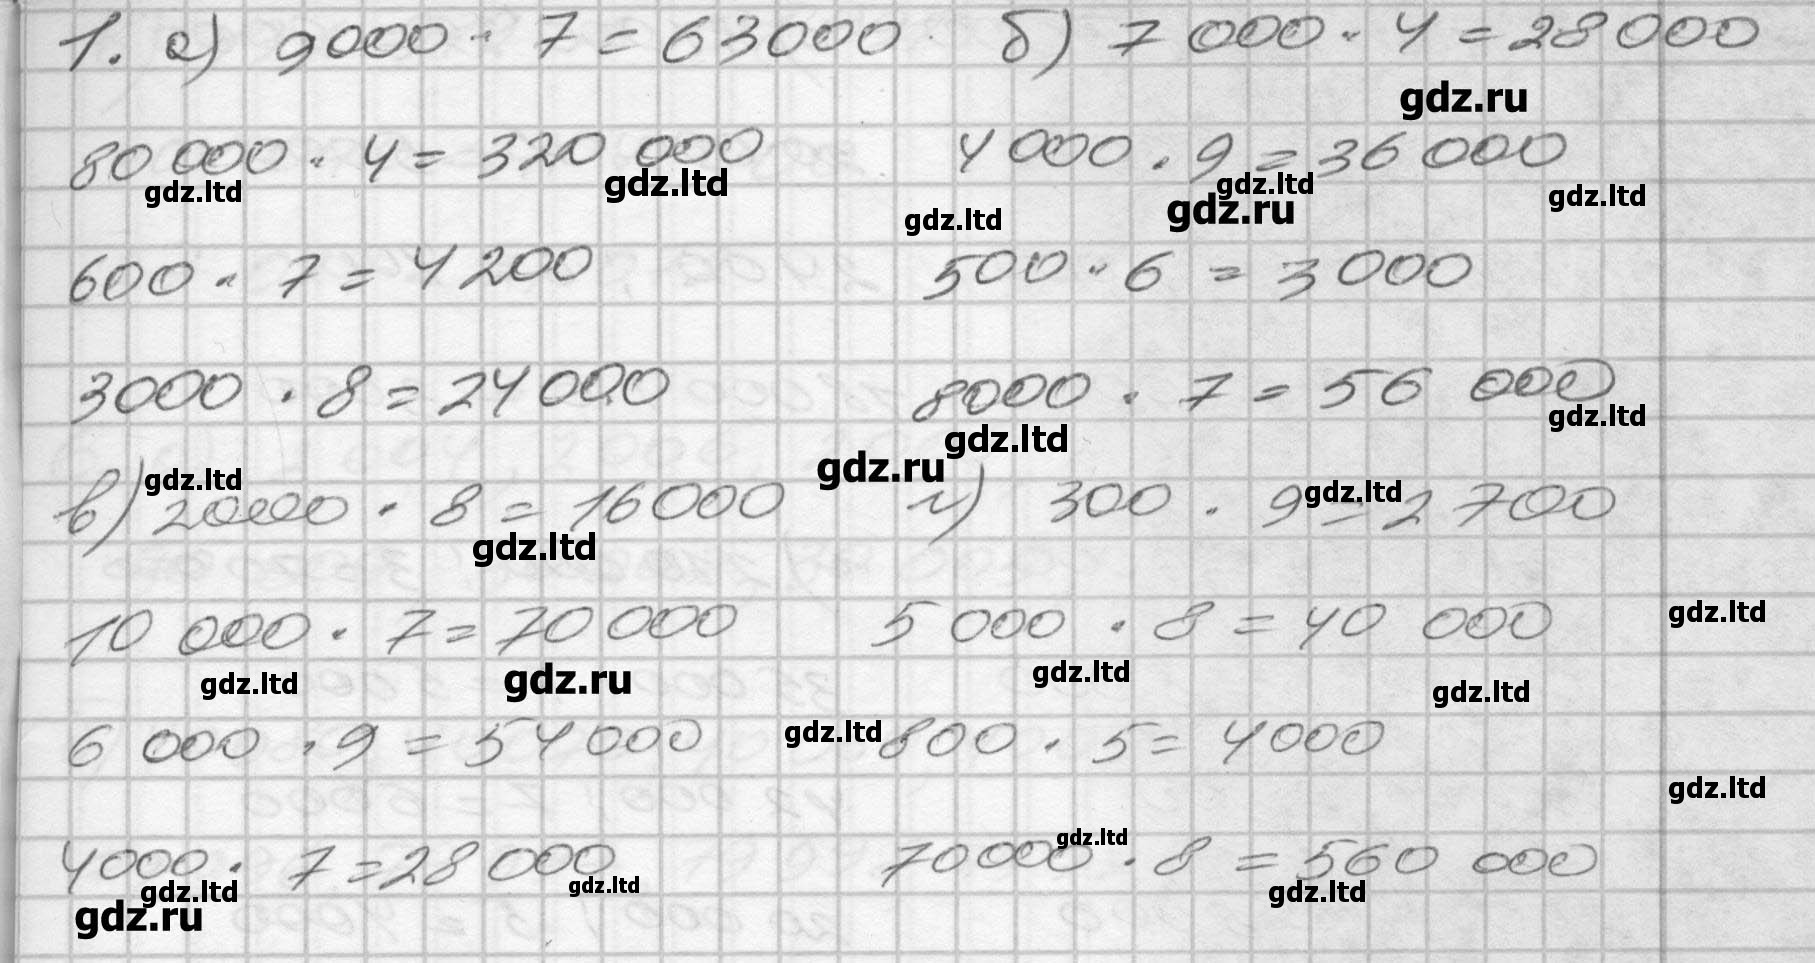 1. а) 9000 · 7 = 63000 б) 7 000 · 4 = 28 000
gdz.ru
80 000 · 4 = 320 000 4 000 · 9 = 36 000
gdz.ltd gdz.ltd gdz.ltd gdz.ltd
gdz.ltd gdz.ru
600 · 7 = 4 200 500 · 6 = 3 000
3000 · 8 = 24 000 8000 · 7 = 56 000
gdz.ltd
gdz.ltd
gdz.ltd gdz.ru
в) 2000 · 8 = 16 000 г) 300 · 9 = 2 700
gdz.ltd
gdz.ltd
10 000 · 7 = 70 000 5 000 · 8 = 40 000
gdz.ltd
gdz.ltd gdz.ru gdz.ltd gdz.ltd
6 000 · 9 = 54 000 800 · 5 = 4000
gdz.ltd
gdz.ltd
gdz.ltd
4000 · 7 = 28 000 70 000 · 8 = 560 000
gdz.ltd gdz.ltd gdz.ltd
gdz.ru